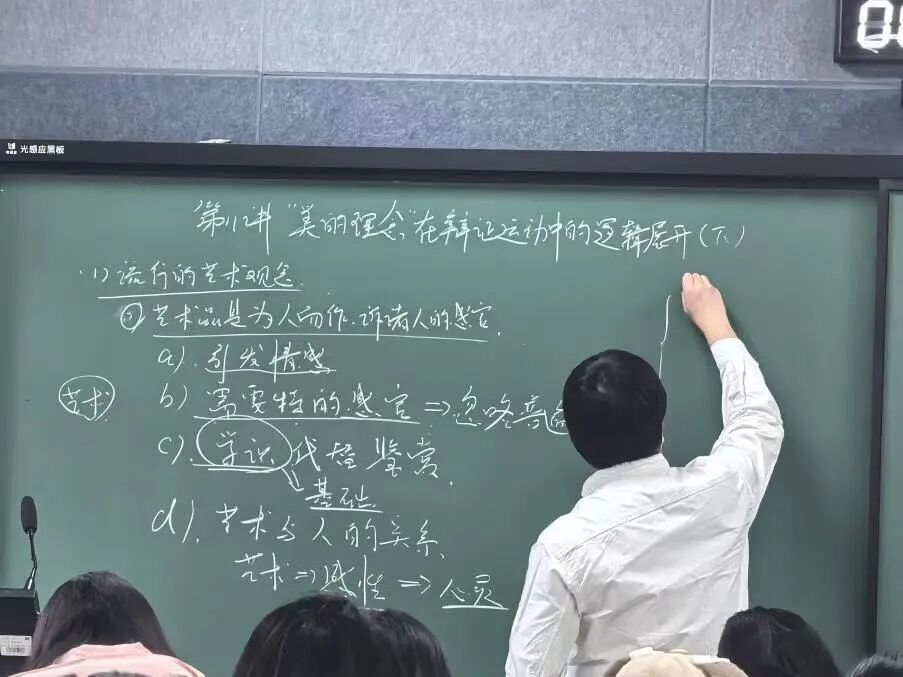 光感应黑板
第11讲 "美的理念"在辩证运动中的逻辑展开(下)
1)流行的艺术观念
② 艺术品是为人而作、诉诸人的感官.
a). 引发情感
艺术
b) 需要特的感官 ⇒ 忽略高
c). 学识代替鉴赏.
基础
d). 艺术与人的关系.
艺术⇒感性⇒心灵